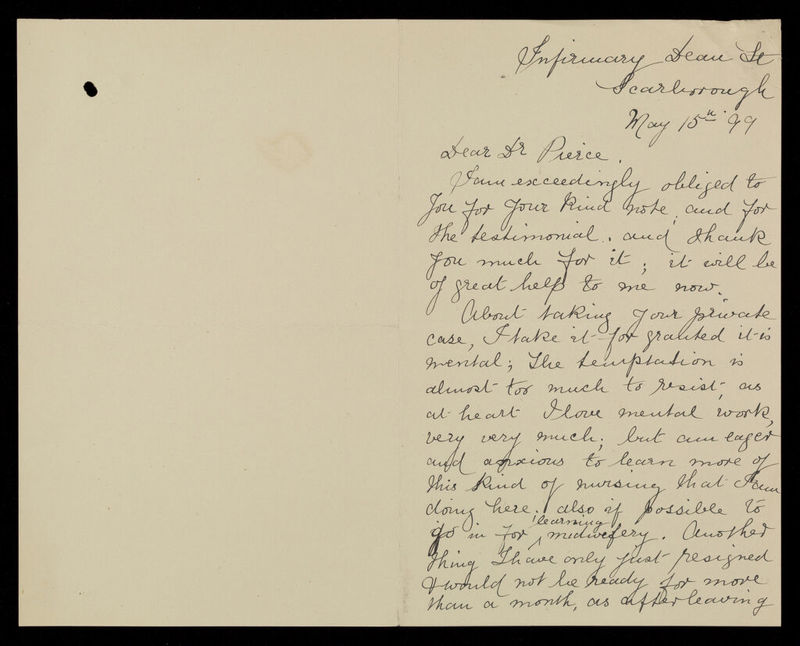 Infirmary Dean St
Scarborough
May 15th 99
Dear Dr Pierce.
I am exceedingly obliged to
you for your kind note, and for
the testimonial. and thank
you much for it; it will be
of great help to me now.
About taking your private
case, I take it for granted it is
mental; the temptation is
almost too much to resist, as
at heart I love mental work,
very very much; but am eager
and anxious to learn more of
this kind of nursing that I am
doing here; also if possible to
go in for learning midwifery. Another
thing I have only just resigned
& would not be ready for more
than a month, as after leaving